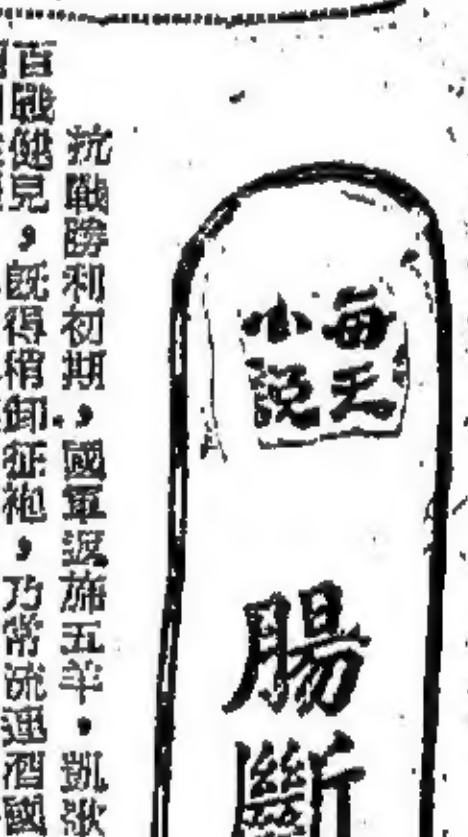 每天
小說
腸斷
抗戰勝利初期，國軍返旆五羊，凱歌
百戰健見，既得稍卸征袍，乃常流連酒國